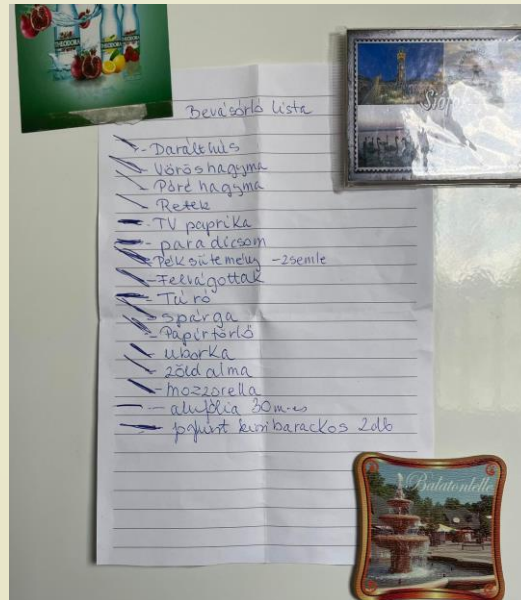 THEODORA
THEODORA
Siófok
Bevásárló lista
- Darálthús
- Vöröshagyma
- Póréhagyma
- Retek
- TV paprika
- paradicsom
- Péksütemény - zsemle
- Felvágottak
- Túró
- spárga
- Papírtörlő
- uborka
- zöld alma
- mozzorella
- alufólia 30 m-es
- joghurt kersibarackos 2db
Balatonlelle